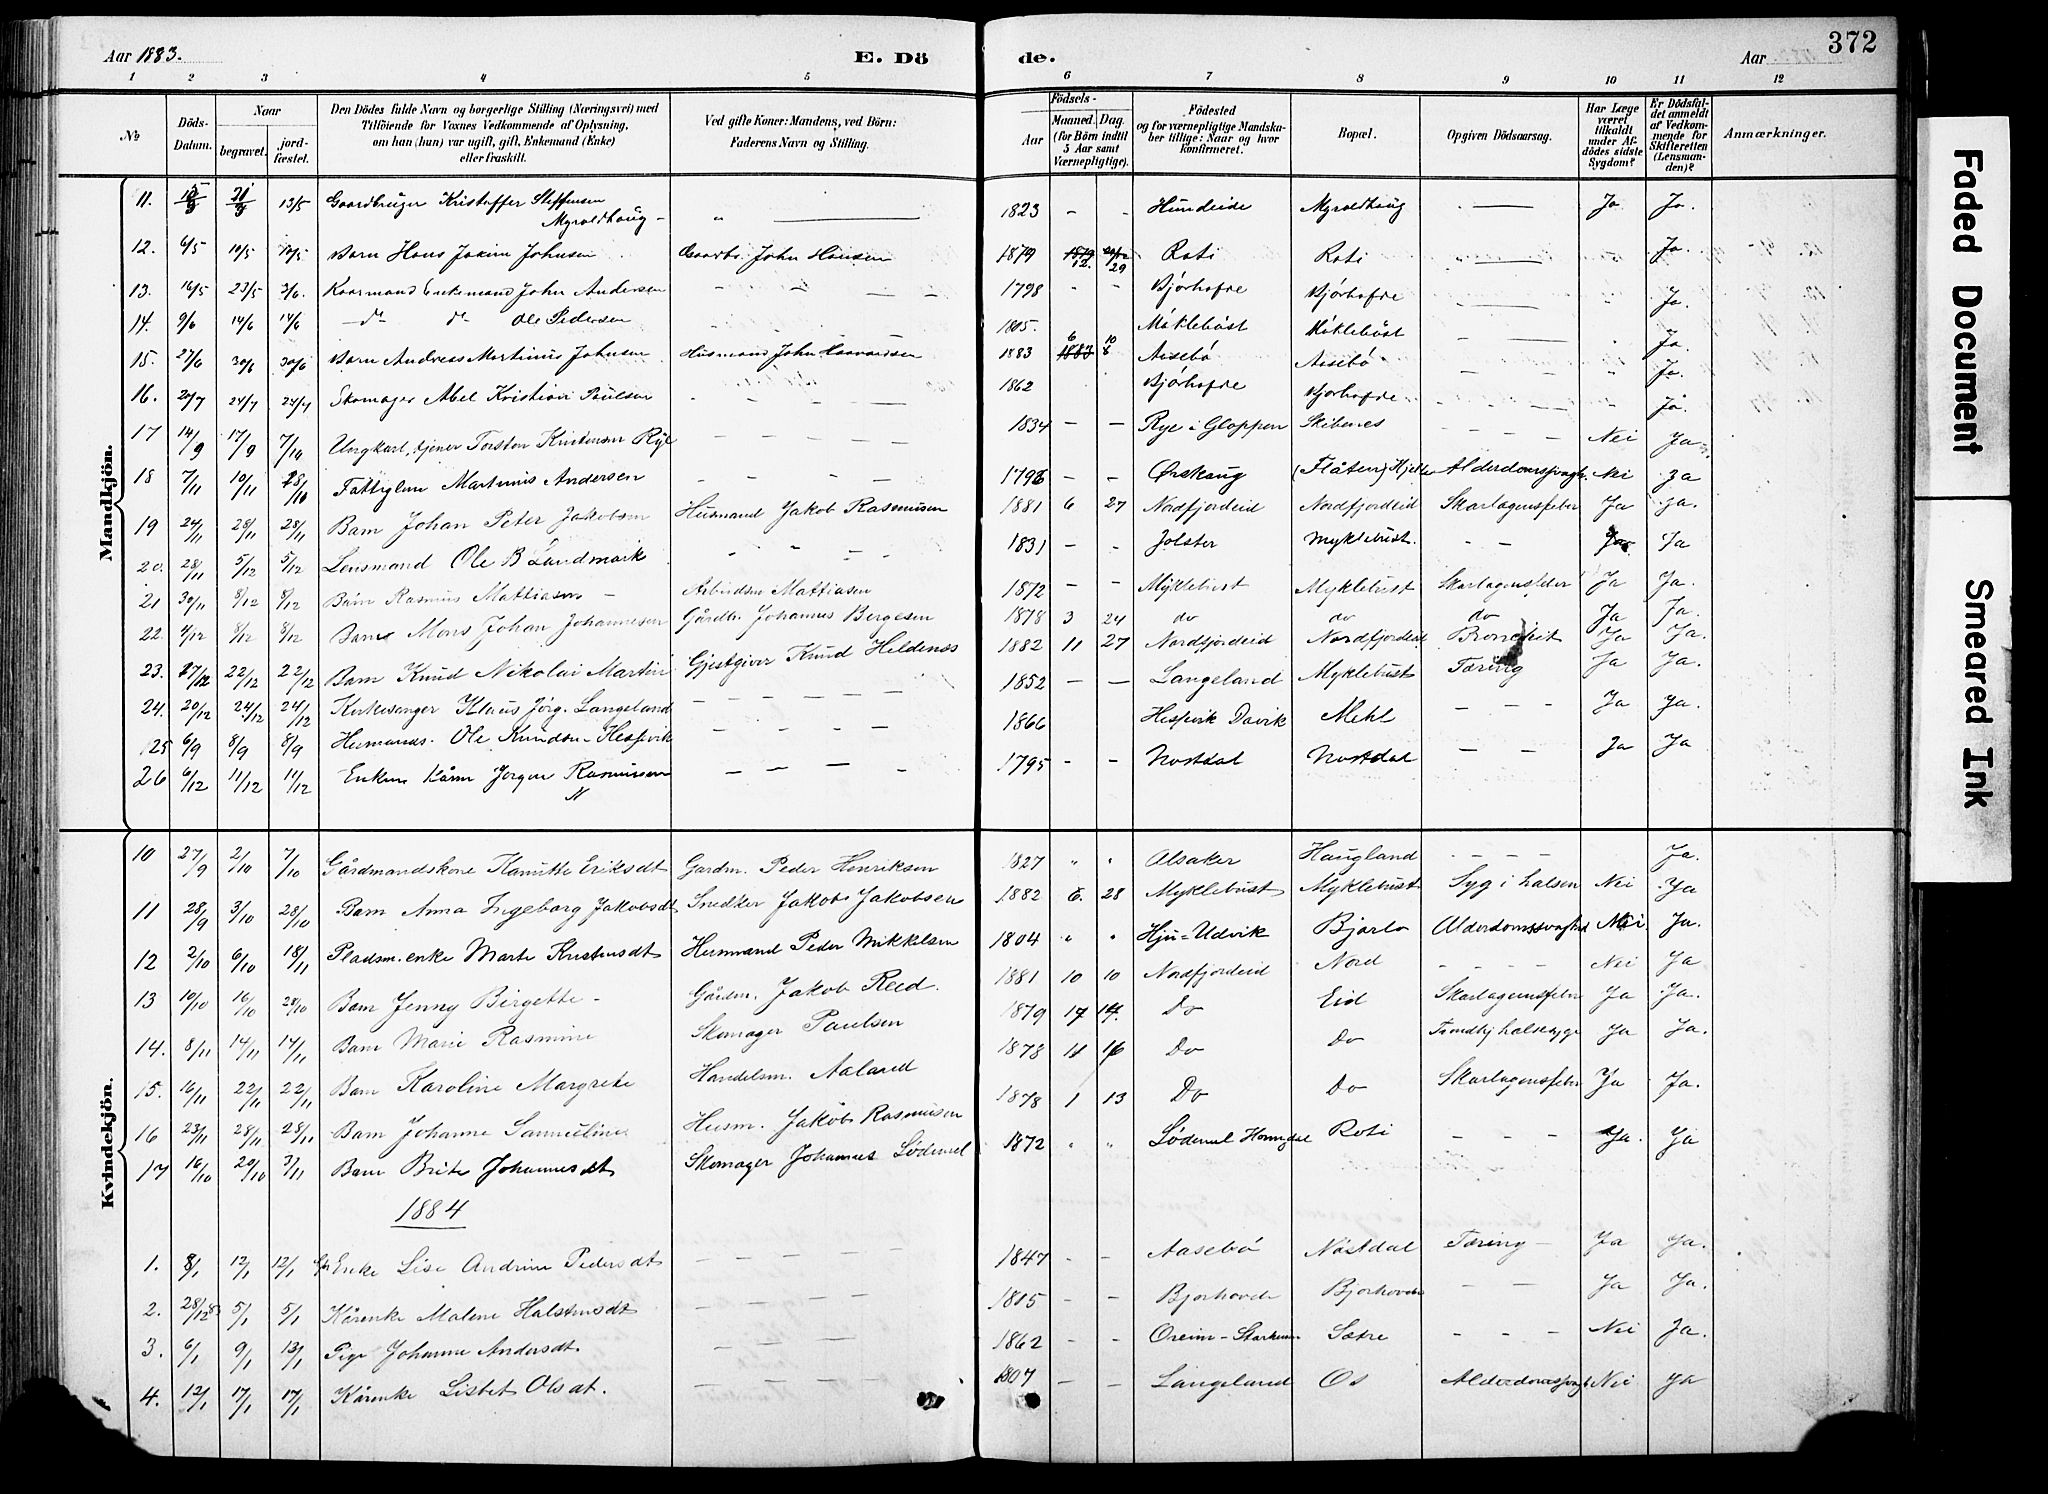 Aar 1883.
E. Dö
de.
Aar
372
1 2 3 4 5 6 7 8 9 10 11 12
No
Döds-Datum.
Naar
begravet.
jord-fæstet.
Den Dödes fulde Navn og borgerlige Stilling (Næringsvei) med
Tilföiende for Voxnes Vedkommende af Oplysning,
om han (hun) var ugift, gift, Enkemand (Enke)
eller fraskilt.
Ved gifte Koner: Mandens, ved Börn:
Faderens Navn og Stilling.
Födsels-
Aar
Maaned. Dag.
(for Börn indtil
5 Aar samt
Værnepligtige).
Födested
og for værnepligtige Mandska-
ber tillige: Naar og hvor
konfirmeret.
Bopæl.
Opgiven Dödsaarsag.
Har Læge
været
tilkaldt
under Af-
dödes sidste
Sygdom?
Er Dödsfal-
det anmeldt
af Vedkom-
mende for
Skifteretten
(Lensman-
den)?
Anmærkninger.
Mandkjön.
11. 13/5 Gaardbruger Kristoffer Steffensen Myroldhoug - " 1823 - - Hundeide Myroldhoug Ja Ja.
12. 6/5 10/5 10/5 Barn Hans Joakim Johnsen Gaardb. John Hansen 1879 12. 29 Roti Roti Ja.
13. 16/5 23/5 3/6. Kaarmand Enkemand John Andersen 1798 - - Bjørhofde Bjørhofde Ja.
14. 9/6 14/6 14/6 do do Ole Pedersen 1805. Möklebüst Möklebüst Ja.
15. 27/6 30/6 30/6 Barn Andreas Martinus Johnsen Husmand John Haavardsen 1883 6 10 Aasebö Aasebö Ja.
16. 20/7 24/7 24/7 Skomager Abel Kristian Paulsen 1862 Bjørhofde Bjørhofde Ja.
17 14/9 17/9 7/10 Ungkarl, tjener Torsten Kristensen Rye 1834 - - Rye i Gloppen Skibenes Nei Ja
18 7/11 10/11 28/10 Fattiglem Martinus Andersen 1796 - - Ørskoug (Flåten) Alderdomssvagh. Nei Ja
19 24/11 28/11 28/11 Barn Johan Peter Jakobsen Husmand Jakob Rasmusen 1881 6 27 Nordfjordeid Nordfjordeid Skarlagensfeber Ja Ja.
20. 28/11 5/12 5/12 Lensmand Ole B Landmark 1831 - - Jolster Myklebust. - - Ja Ja
21 30/11 8/12 8/12 Barn Rasmus Mattiasen Arbeidsm Mattiasen 1872 - - Myklebust Myklebust Skarlagensfeber Ja Ja.
22. 4/12 8/12 8/12 Barn Mons Johan Johannesen Gårdbr. Johannes Bergesen 1878 3 24 do do do Ja Ja.
23. 17/12 22/12 22/12 Barn Knud Nikolai Martin Gjestgiver Knud Heldenæs 1882 11 27 Nordfjordeid Nordfjordeid Ja Ja.
24. 20/12 24/12 24/12 Kirkesanger Klaus Jörg. Langeland 1852 - - Langeland Myklebust Tæring Ja Ja.
25 6/9 8/9 8/9 Husmands. Ole Knudsen Hessevik 1866 Hessevik Davik Mehl - - - Ja Ja.
26 6/12 11/12 11/12 Enkem Kårm Jorgen Rasmussen N 1795 - - Nostdal Nostdal - - Ja Ja
Kvindekjön.
10 27/9 2/10 7/10 Gårdmandskone Kamitte Eriksdt Gardm. Peder Henriksen 1827 " " Alsaker Haugland - - - Ja.
11 28/9 3/10 28/10 Barn Anna Ingeborg Jakobsdt Snedker Jakob Jakobsen 1882 6. 28 Myklebust Myklebust Syg i halsen Nei Ja
12 2/10 6/10 18/11 Pladsm. enke Marte Kristensdt Husmand Peder Mikkelsen 1804 " " Hju=Udvik Bjorlo Alderdomssvaghed Nei. Ja.
13 10/10 16/10 28/10 Barn Jenny Birgette - Gårdm. Jakob Reed. 1881 10 10 Nordfjordeid Nord - - - - Nei Ja
14. 8/11 14/11 14/11 Barn Marie Rasmine Skomager Paulsen 1879 14. Do Eid Skarlagensfeber Ja Ja.
15. 16/11 22/11 22/11 Barn Karoline Margrete Handelsm. Aaland 1878 11 16 Do Do Trondhj halssyge Ja Ja.
16 23/11 28/11 28/11 Barn Johanne Samueline Husm. Jakob Rasmusen 1878 1 13 Do Do Skarlagensfeber Ja Ja.
17 16/10 20/10 3/11 Barn Brite Johannesdt Skomager Johannes Lödemel 1872 " " Lödemel Hornindal Roti - - - Ja. Ja
1884
1. 8/1 12/1 12/1 Enke Lise Andrine Pedersdt 1847 - - Aasebö Nöstdal Tæring - Ja Ja.
2. 28/12 5/1 5/1 Kårenke Malene Halstensdt 1805 - - Bjorhovde Bjorhovde - - Ja Ja.
3. 6/1 9/1 13/1 Pige Johanne Andersdt. 1862 - - Oreim - Starheim Sætre - - - Nei Ja.
4. 12/1 17/1 17/1 Kårenke Lisbet Olsdt. 1807 - - Langeland Os Alderdomssvagh Nei Ja
Faded Document
Smeared Ink